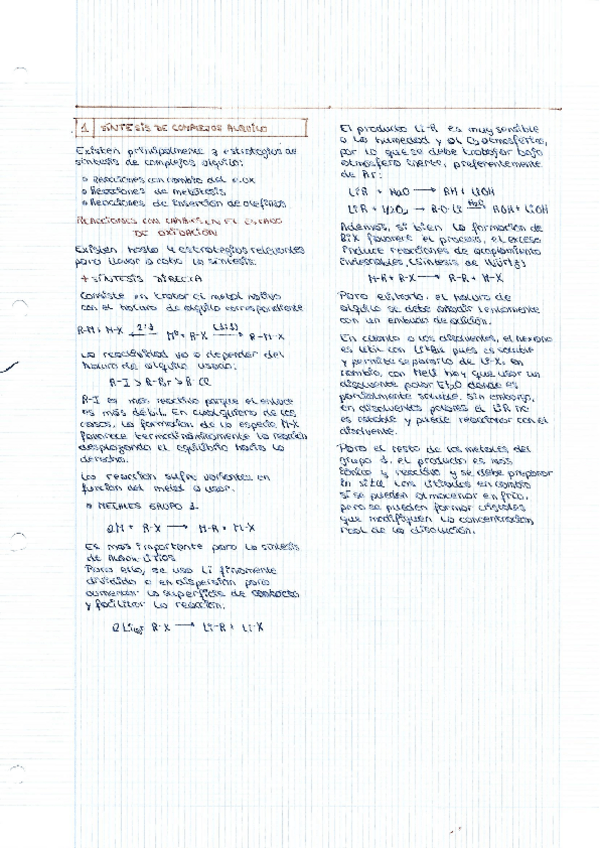 1 SÍNTESIS DE COMPLEJOS ALQUILO
Existen principalmente 3 estrategias de
síntesis de complejos alquilo:
Reacciones con cambio del e.ox
Reacciones de metátesis
Reacciones de inserción de olefinas
REACCIONES CON CAMBIOS EN EL ESTADO
DE OXIDACIÓN
Existen hasta 4 estrategias relevantes
para llevar a cabo la síntesis.
+ SÍNTESIS DIRECTA
Consiste en tratar el metal nativo
con el haluro de alquilo correspondiente
R-M + M-X M⁰ + R-X R-M-X
La reactividad va a depender del
haluro de alquilo usado:
R-I > R-Br > R-Cl
R-I es más reactivo porque el enlace
es más débil. En cualquiera de los
casos, la formación de la especie M-X
favorece termodinámicamente la reacción
desplazando el equilibrio hacia la
derecha.
Las reacción sufre variantes en
función del metal a usar.
METALES GRUPO 1.
2M + R-X → M-R + M-X
Es más importante para la síntesis
de
Para ello, se usa Li finamente
dividido o en dispersión para
aumentar la superficie de contacto
y facilitar la reacción.
2 Li R-X → Li-R + Li-X
El producto Li-R es muy sensible
a la humedad y al atmosférico,
por lo que se debe trabajar bajo
atmósfera inerte, preferentemente
de Ar:
LiR + H₂O → RH + LiOH
LiR + → R-O-Li → ROH + LiOH
Además, si bien la formación de
LiX favorece el proceso, el exceso
induce reacciones de acoplamiento
indeseables (Síntesis de Würtz)
M-R + R-X → R-R + M-X
Para evitarlo, el haluro de
alquilo se debe añadir lentamente
con un embudo de adición.
En cuanto a los disolventes, el hexano
es útil con pues es soluble
y permite separarlo de Li-X. En
cambio, con MeLi hay que usar un
disolvente polar Et₂O donde es
parcialmente soluble. Sin embargo,
en disolventes polares el LiR no
es estable y puede reaccionar con el
disolvente.
Para el resto de los metales del
grupo 1, el producto es más
iónico y reactivo y se debe preparar
in situ. Los litiados en cambio
sí se pueden almacenar en frío,
pero se pueden formar cristales
que modifiquen la concentración
real de la disolución.